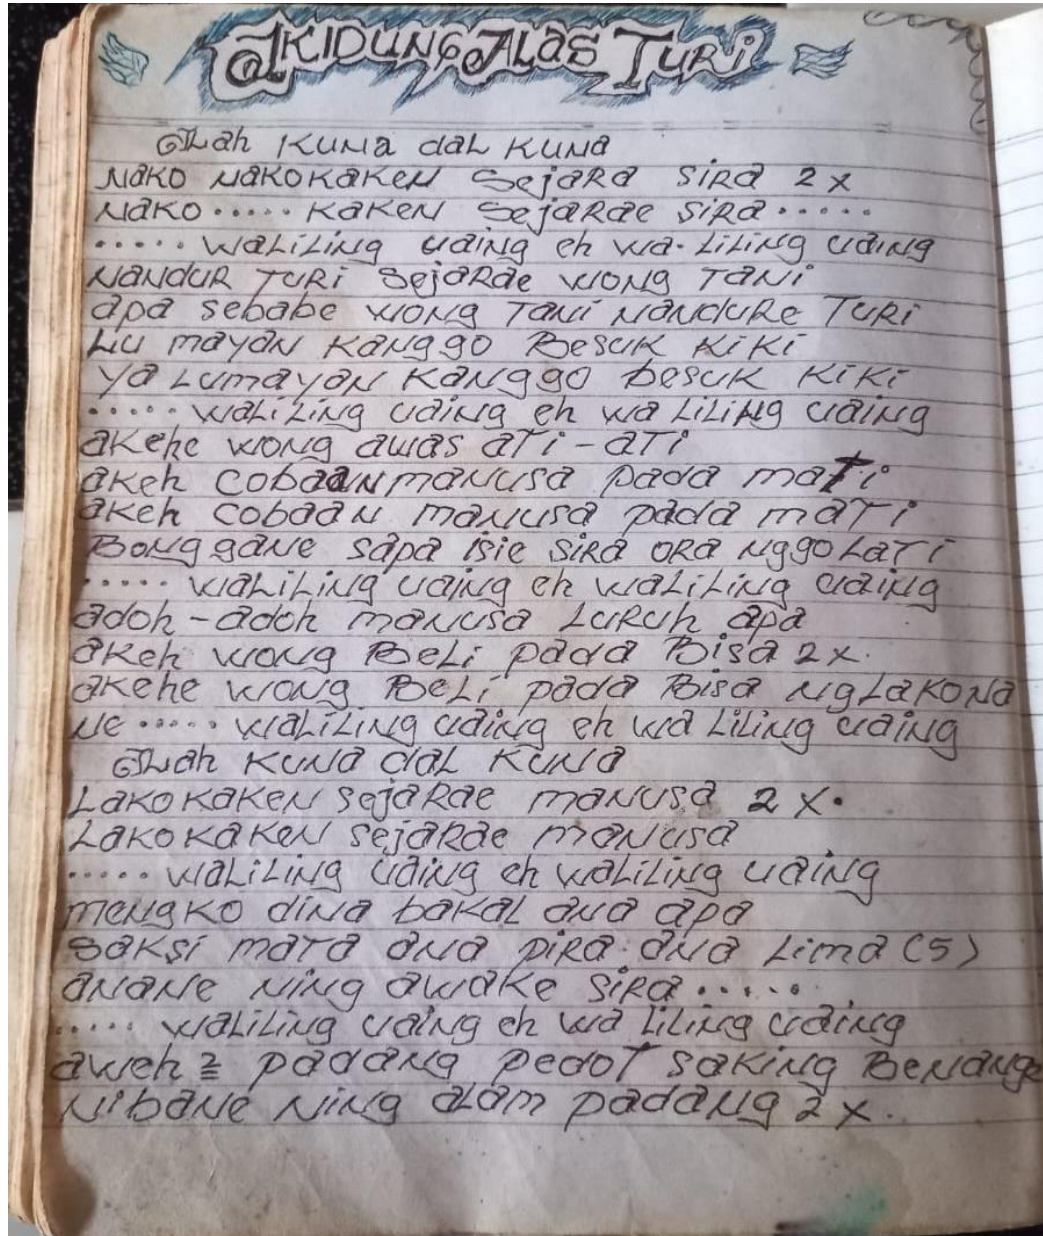 KIDUNG ALAS TURI
Lah KUNA daL KUNA
NAKO NAKOKAKEN SejaRa SiRa 2 x
NAKO ..... KAKEN SejaRae SiRa .....
..... waLiLiNg udiNg eh wa-LiLiNg udiNg
NANDUR TURi SejaRae woNg TaNi
apa sebabe woNg TaNi NaNduRe TuRi
Lu mayaN KaNggo Besuk KiKi
ya LumayaN KaNggo besuk KiKi
..... waLiLiNg udiNg eh wa LiLiNg udiNg
akehe woNg awas aTi - aTi
akeh cobaaN maNusa pada maTi
akeh cobaaN maNusa pada maTi
BoNg gaNe sapa isie siRa oRa NggoLaTi
..... waLiLiNg udiNg eh waLiLiNg udiNg
adoh - adoh maNusa LuRuh apa
akeh woNg BeLi pada Bisa 2 x.
akehe woNg BeLi pada Bisa NgLakoNa
Ne ..... waLiLiNg udiNg eh wa LiLiNg udiNg
Lah KuNa daL KuNa
LakokakeN sejaRae maNusa 2 x.
LakokakeN sejaRae maNusa
..... waLiLiNg udiNg eh waLiLiNg udiNg
meNgko diNa bakaL aNa apa
saksi maTa aNa piRa aNa Lima (5)
aNaNe NiNg awake siRa ......
..... waLiLiNg udiNg eh wa LiLiNg udiNg
aweh 2 padaNg pedoT sakiNg BeNaNge
NibaNe NiNg aLam padaNg 2 x.